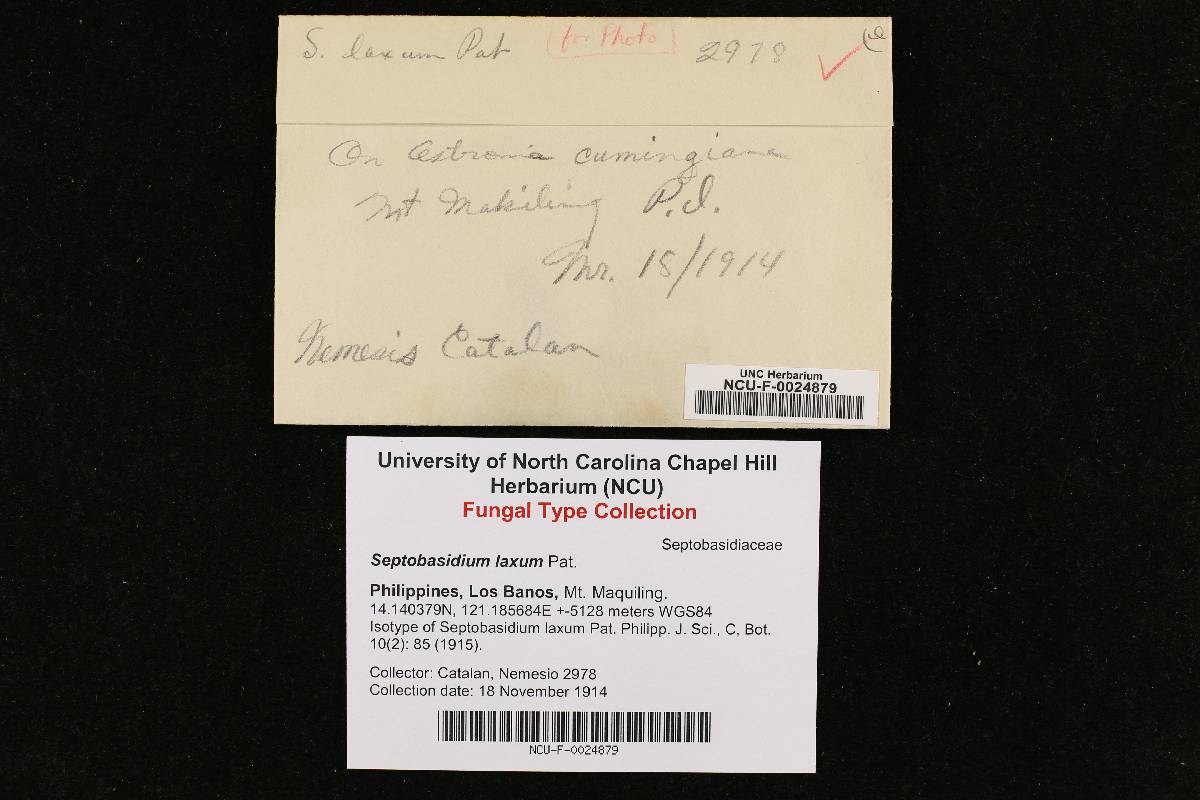 S. laxum Pat (for Photo) 2978
On Astronia cumingiana
Mt Makiling P.I.
Nr. 18/1914
Nemesis Catalan
UNC Herbarium
NCU-F-0024879
University of North Carolina Chapel Hill
Herbarium (NCU)
Fungal Type Collection
Septobasidiaceae
Septobasidium laxum Pat.
Philippines, Los Banos, Mt. Maquiling.
14.140379N, 121.185684E +-5128 meters WGS84
Isotype of Septobasidium laxum Pat. Philipp. J. Sci., C, Bot.
10(2): 85 (1915).
Collector: Catalan, Nemesio 2978
Collection date: 18 November 1914
NCU-F-0024879